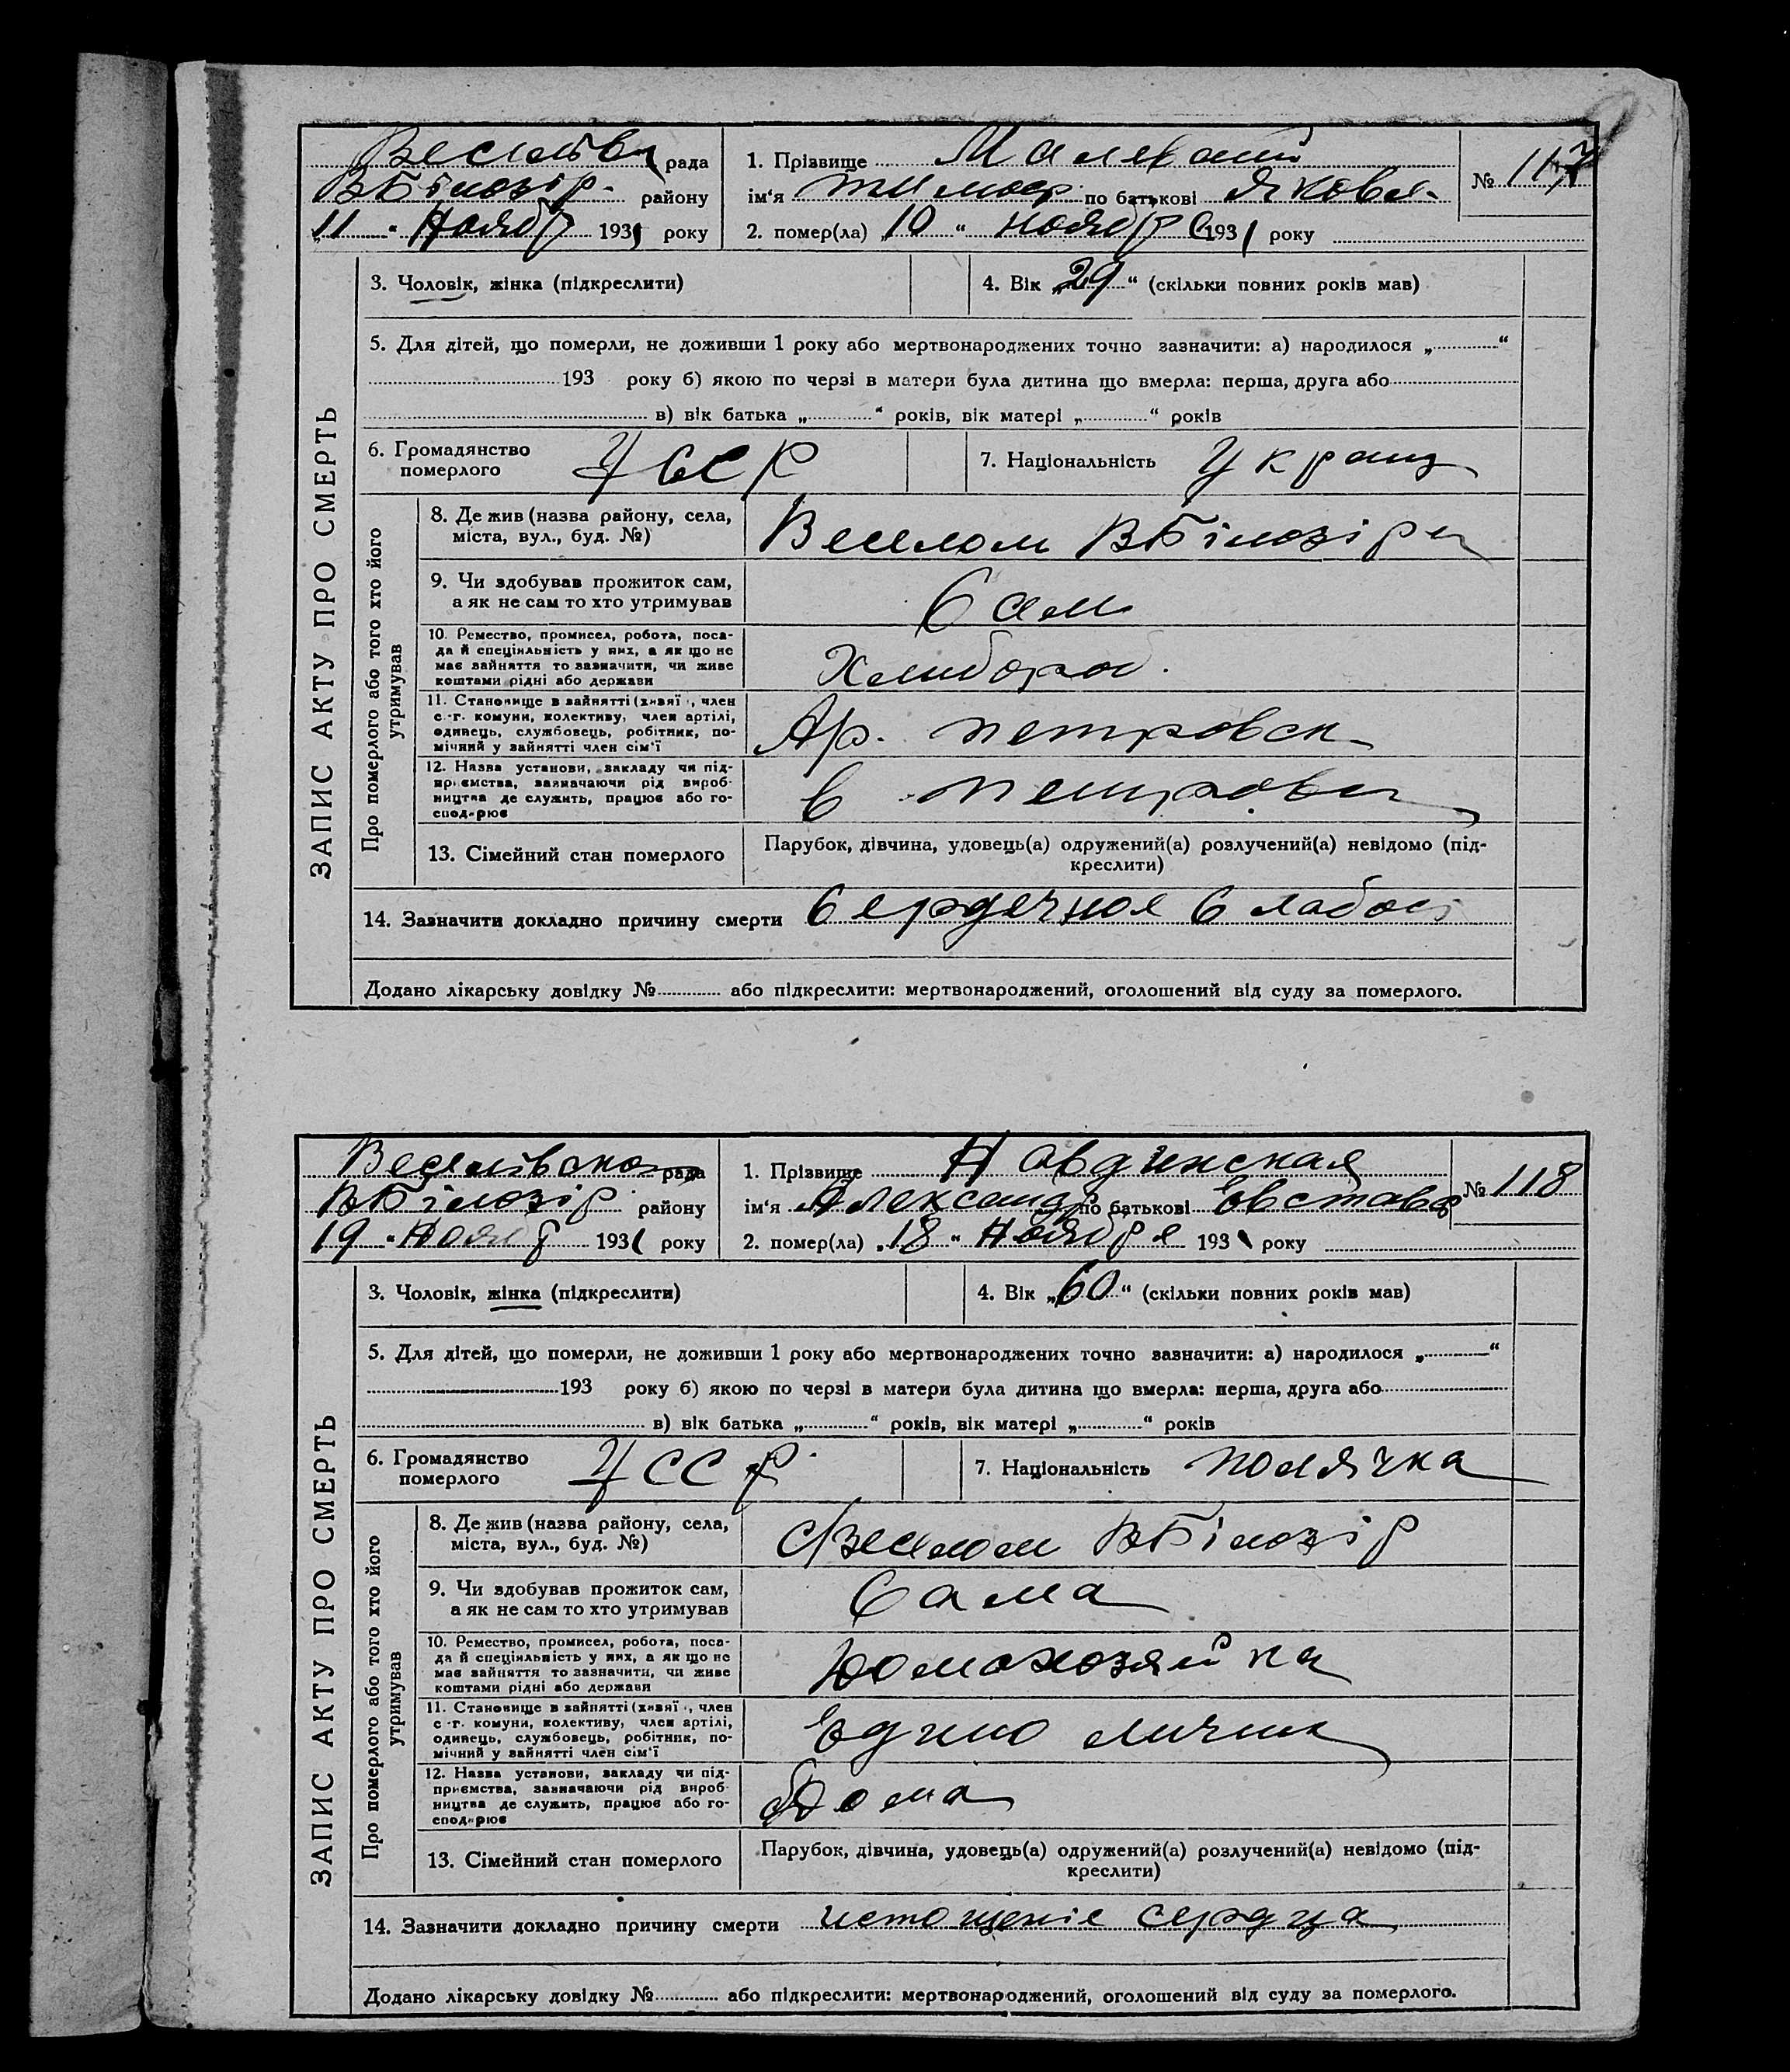 Веселівс рада
ВБілозір. району
„11 “ Нояб 1931 року
1. Прізвище Малеваний
ім‘я Тимоф. по батькові Яковл.
2. помер(ла) „10 “ ноября 1931 року
№ 117
3. Чоловік, жінка (підкреслити)
4. Вік „29“ (скільки повних років мав)
5. Для дітей, що померли, не доживши 1 року або мертвонароджених точно зазначити: а) народилося „ “
193 року б) якою по черзі в матери була дитина що вмерла: перша, друга або
в) вік батька „ “ років, вік матері „ “ років
6. Громадянство
померлого
УССР
7. Національність Украин
ЗАПИС АКТУ ПРО СМЕРТЬ
Про померлого або того хто його
утримував
8. Де жив (назва району, села,
міста, вул., буд. №)
Веселом ВБілозірк
9. Чи здобував прожиток сам,
а як не сам то хто утримував
Сам
10. Ремество, промисел, робота, поса-
да й спеціяльність у них, а як що не
має зайняття то зазначити, чи живе
коштами рідні або держави
Хлибороб.
11. Становище в зайнятті (хазяї , член
с.-г. комуни, колективу, член артілі,
одинець, службовець, робітник, по-
мічний у зайнятті член сім‘ї
Ар. петровск
12. Назва установи, закладу чи під-
приємства, зазначаючи рід вироб-
ництва де служить, працює або го-
сподарює
в петровск
13. Сімейний стан померлого
Парубок, дівчина, удовець(а) одружений(а) розлучений(а) невідомо (під-
креслити)
14. Зазначити докладно причину смерти Сердечная Слабост
Додано лікарську довідку № або підкреслити: мертвонароджений, оголошений від суду за померлого.
Веселівсько рада
ВБілозір району
19 “ Нояб 1931 року
1. Прізвище Навдинская
ім‘я Александр по батькові Евстав
2. помер(ла) „18 “ Ноября 1931 року
№ 118
3. Чоловік, жінка (підкреслити)
4. Вік „60“ (скільки повних років мав)
5. Для дітей, що померли, не доживши 1 року або мертвонароджених точно зазначити: а) народилося „ “
193 року б) якою по черзі в матери була дитина що вмерла: перша, друга або
в) вік батька „ “ років, вік матері „ “ років
6. Громадянство
померлого
УССР
7. Національність полячка
ЗАПИС АКТУ ПРО СМЕРТЬ
Про померлого або того хто його
утримував
8. Де жив (назва району, села,
міста, вул., буд. №)
Веселом ВБілозір
9. Чи здобував прожиток сам,
а як не сам то хто утримував
Сама
10. Ремество, промисел, робота, поса-
да й спеціяльність у них, а як що не
має зайняття то зазначити, чи живе
коштами рідні або держави
Домохозяйка
11. Становище в зайнятті (хазяї , член
с.-г. комуни, колективу, член артілі,
одинець, службовець, робітник, по-
мічний у зайнятті член сім‘ї
Едино личник
12. Назва установи, закладу чи під-
приємства, зазначаючи рід вироб-
ництва де служить, працює або го-
сподарює
Дома
13. Сімейний стан померлого
Парубок, дівчина, удовець(а) одружений(а) розлучений(а) невідомо (під-
креслити)
14. Зазначити докладно причину смерти истощеніе сердца
Додано лікарську довідку № або підкреслити: мертвонароджений, оголошений від суду за померлого.